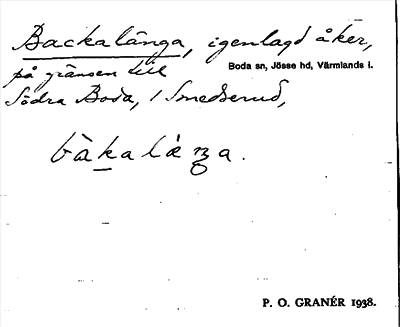 Backalånga, igenlagd åker,
på gränsen till
Boda sn, Jösse hd, Värmlands l.
Södra Boda, 1 Smedserud,
bàkalåŋa.
P. O. GRANÉR 1938.